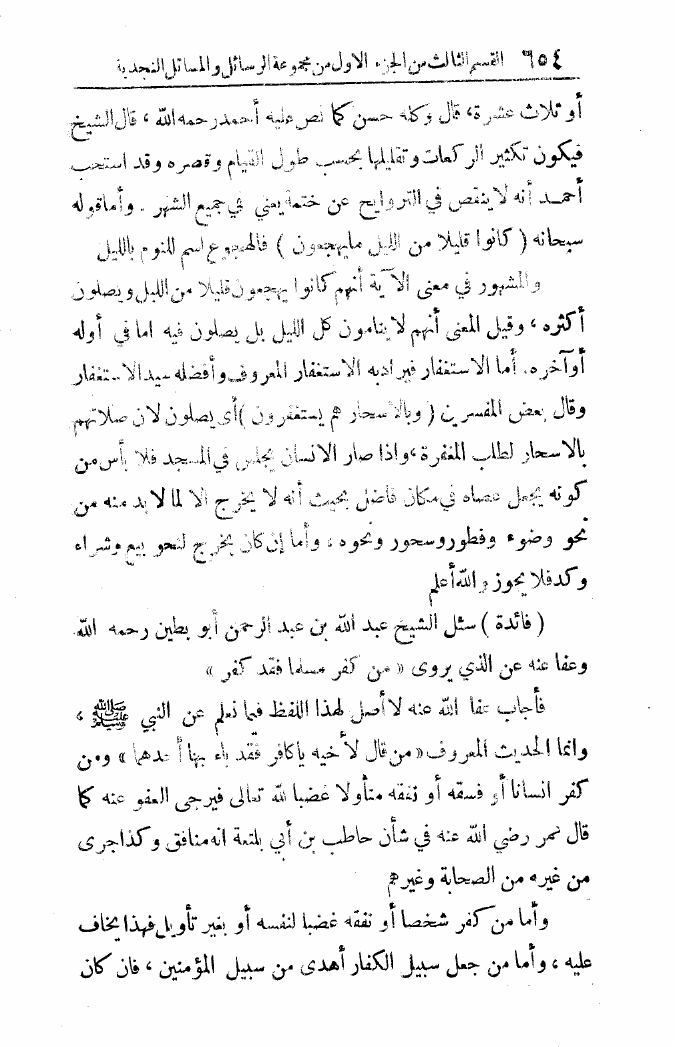 ٦٥٤ القسم الثالث من الجزء الاول من مجموعة الرسائل والمسائل النجدية
أو ثلاث عشرة، قال وكله حسن كما نص عليه أحمد رحمه الله ، قال الشيخ
فيكون تكثير الركعات وتقليلها بحسب طول القيام وقصره وقد استحب
أحمد أنه لا ينقص في التروايح عن ختمة يعني في جميع الشهر . وأما قوله
سبحانه ( كانوا قليلا من الليل ما يهجعون ) فالهجوع اسم للنوم بالليل
والمشهور في معنى الآية أنهم كانوا يهجعون قليلا من الليل ويصلون
أكثره ، وقيل المعنى أنهم لا ينامون كل الليل بل يصلون فيه اما في أوله
أو آخره. أما الاستغفار فيراد به الاستغفار المعروف وأفضله سيد الاستغفار
وقال بعض المفسرين ( وبالاسحار هم يستغفرون )أى يصلون لان صلاتهم
بالاسحار لطلب المغفرة ، واذا صار الانسان يجلس في المسجد فلا بأس من
كونه يجعل عصاه في مكان فاضل بحيث أنه لا يخرج الا لما لا بد منه من
نحو وضوء وفطور وسحور ونحوه ، وأما إن كان يخرج لنحو بيع وشراء
وكد فلا يجوز والله أعلم
( فائدة ) سئل الشيخ عبد الله بن عبد الرحمن أبو بطين رحمه الله
وعفا عنه عن الذي يروى « من كفر مسلما فقد كفر »
فأجاب عفا الله عنه لا أصل لهذا اللفظ فيما نعلم عن النبي ﷺ ،
وانما الحديث المعروف « من قال لأخيه يا كافر فقد باء بها أحدهما » ومن
كفر انسانا أو فسقه أو نفقه متأولا غضبا لله تعالى فيرجى العفو عنه كما
قال عمر رضي الله عنه في شأن حاطب بن أبي بلتعة انه منافق وكذا جرى
من غيره من الصحابة وغيرهم
وأما من كفر شخصا أو نفقه غضبا لنفسه أو بغير تأويل فهذا يخاف
عليه ، وأما من جعل سبيل الكفار أهدى من سبيل المؤمنين ، فان كان